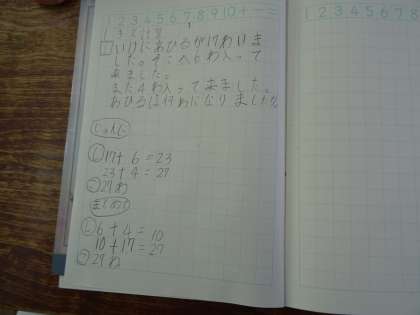 1 2 3 4 5 6 7 8 9 10 十 一 二
1 いけにあひるが17わいま
した。そこへ6わ入って
来ました。
また4わ入って来ました。
あひるは何わになりましたか
じゅんに
し 17+6=23
23+4=27
こ 27わ
まとめて
し 6+4=10
10+17=27
こ 27わ
1 2 3 4 5 6 7 8